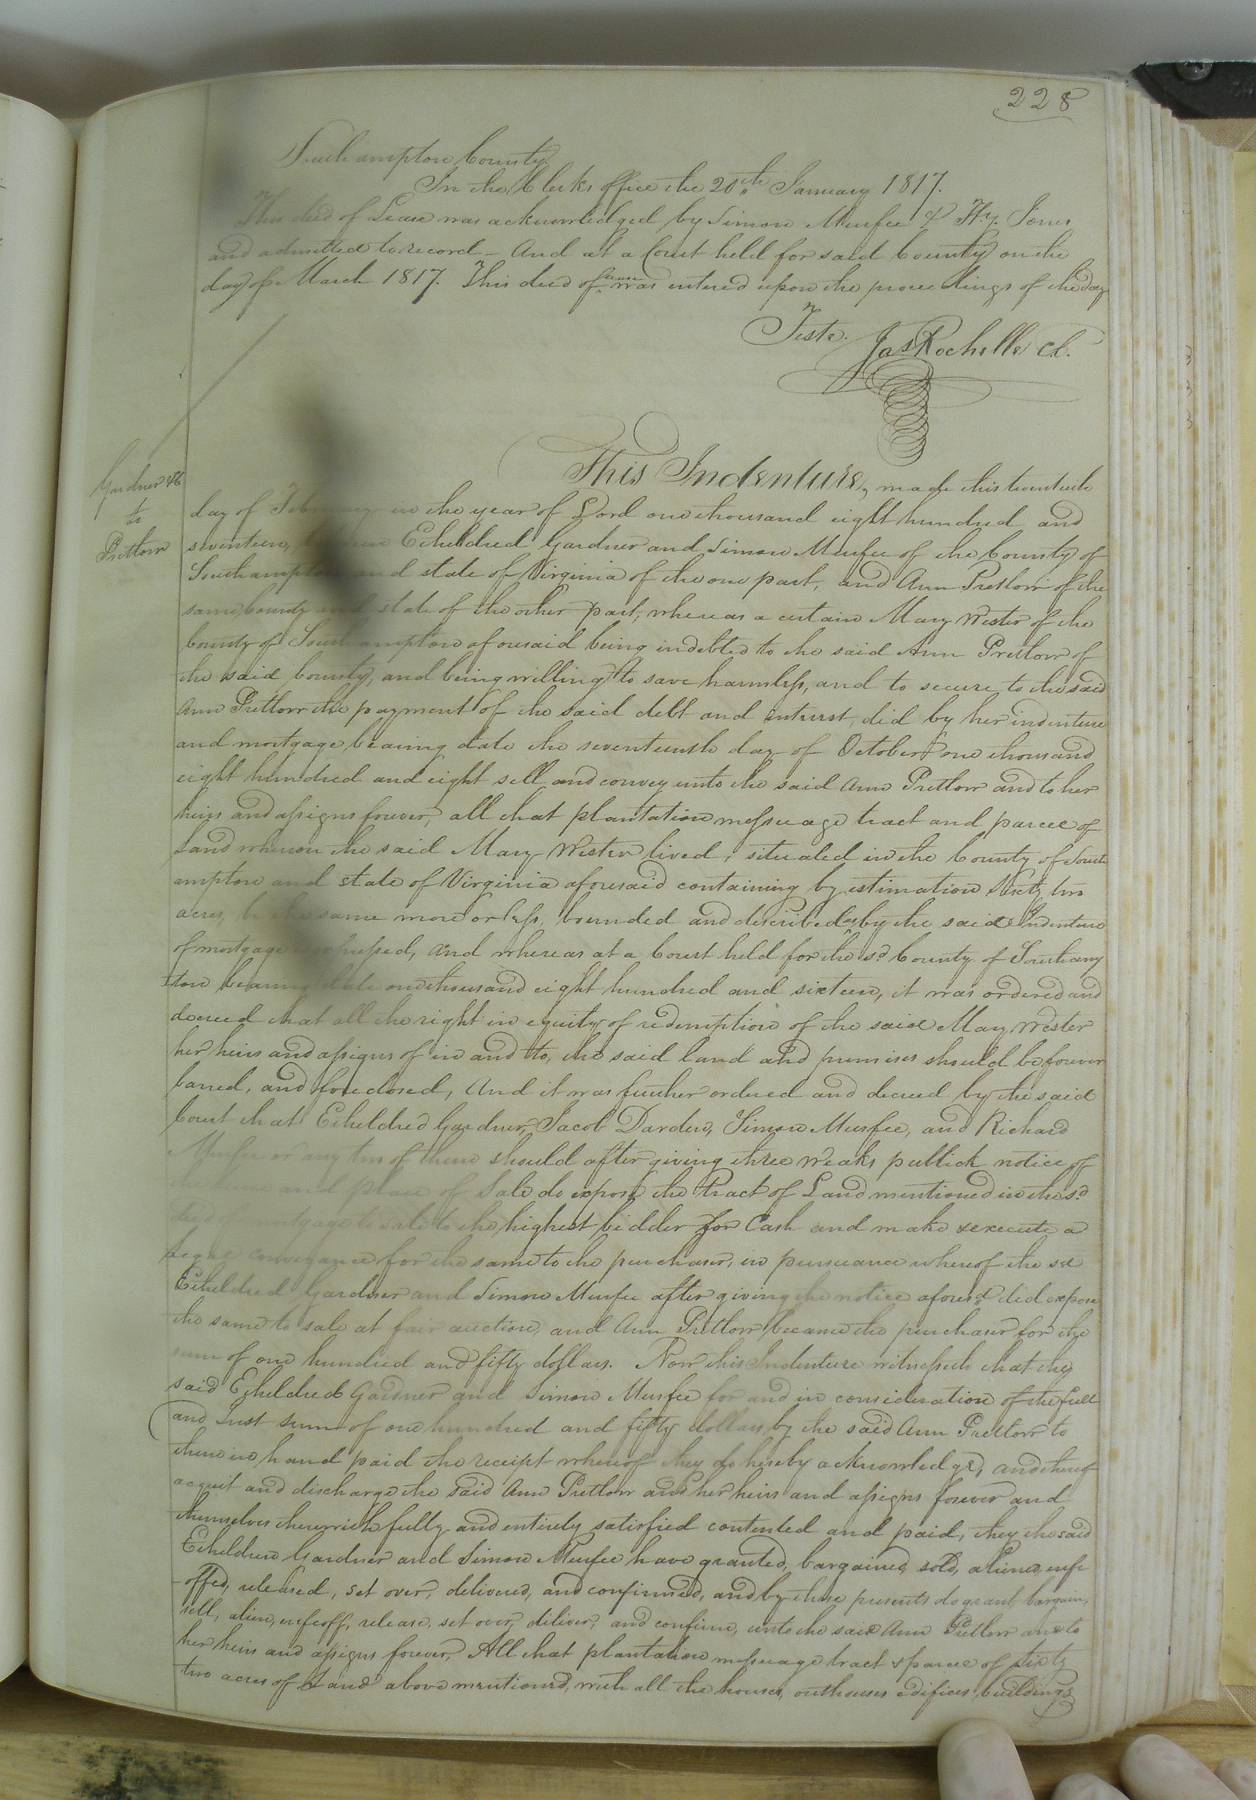 228
Southampton County
In the Clerks office the 20th January 1817.
This deed of Lease was acknowledged by Simon Murfee & Hy. Jones
and admitted to record – And at a Court held for said County on the
day of March 1817. This deed of Lease was entered upon the proceedings of the day
Teste. Jas Rochelle Cl.
Gardner &c
to
Pretlow
This Indenture, made this twentieth
day of February in the year of Lord one thousand eight hundred and
seventeen, Between Etheldred Gardner and Simon Murfee of the County of
Southampton and state of Virginia of the one part, and Ann Pretlow of the
same county and state of the other part, whereas a certain Mary Wester of the
County of Southampton aforesaid being indebted to the said Ann Pretlow of
the said County, and being willing to save harmless, and to secure to the said
Ann Pretlow the payment of the said debt and interest, did by her indenture
and mortgage bearing date the seventeenth day of October one thousand
eight hundred and eight sell and convey unto the said Ann Pretlow and to her
heirs and assigns forever, all that plantation messuage tract and parcel of
Land whereon the said Mary Wester lived, situated in the County of South
ampton and state of Virginia aforesaid containing by estimation Sixty two
acres, be the same more or less, bounded and described as by the said Indenture
of mortgage expressed, And whereas at a Court held for the sd. County of Southamp
ton bearing date one thousand eight hundred and sixteen, it was ordered and
decreed that all the right in equity of redemption of the said Mary Wester
her heirs and assigns of in and to, the said land and premises should be forever
barred, and foreclosed, And it was further ordered and decreed by the said
Court that Etheldred Gardner, Jacob Darden, Simon Murfee, and Richard
Murfee or any two of them should after giving three weaks publick notice of
and place of Sale do expose the tract of Land mentioned in the sd.
deed mortgage to sale to the highest bidder for Cash and make & execute a
legal conveyance for the same to the purchaser, in pursuance whereof the sd
Etheldred Gardner and Simon Murfee after giving the notice aforesd. did expose
the same to sale at fair auction, and Ann Pretlow became the purchaser for the
sum of one hundred and fifty dollars. Now this Indenture witnesseth that they
said Etheldred Gardner and Simon Murfee for and in consideration of the full
and Just sum of one hundred and fifty dollars by the said Ann Pretlow to
them in hand paid the receipt whereof they do hereby acknowledge, and thereof
acquit and discharge the said Ann Pretlow and her heirs and assigns forever and
themselves therewith fully and entirely satisfied contented and paid, they the said
Etheldred Gardner and Simon Murfee have granted, bargained, sold, aliened, enfe
offed, released, set over, delivered, and confirmed, and by these presents do grant bargain,
sell, alien, enfeoff, release, set over, deliver, and confirm, unto the said Ann Pretlow and to
her heirs and assigns forever, All that plantation messuage tract & parcel of sixty
two acres of Land above mentioned, with all the houses, outhouses edifices, buildings,